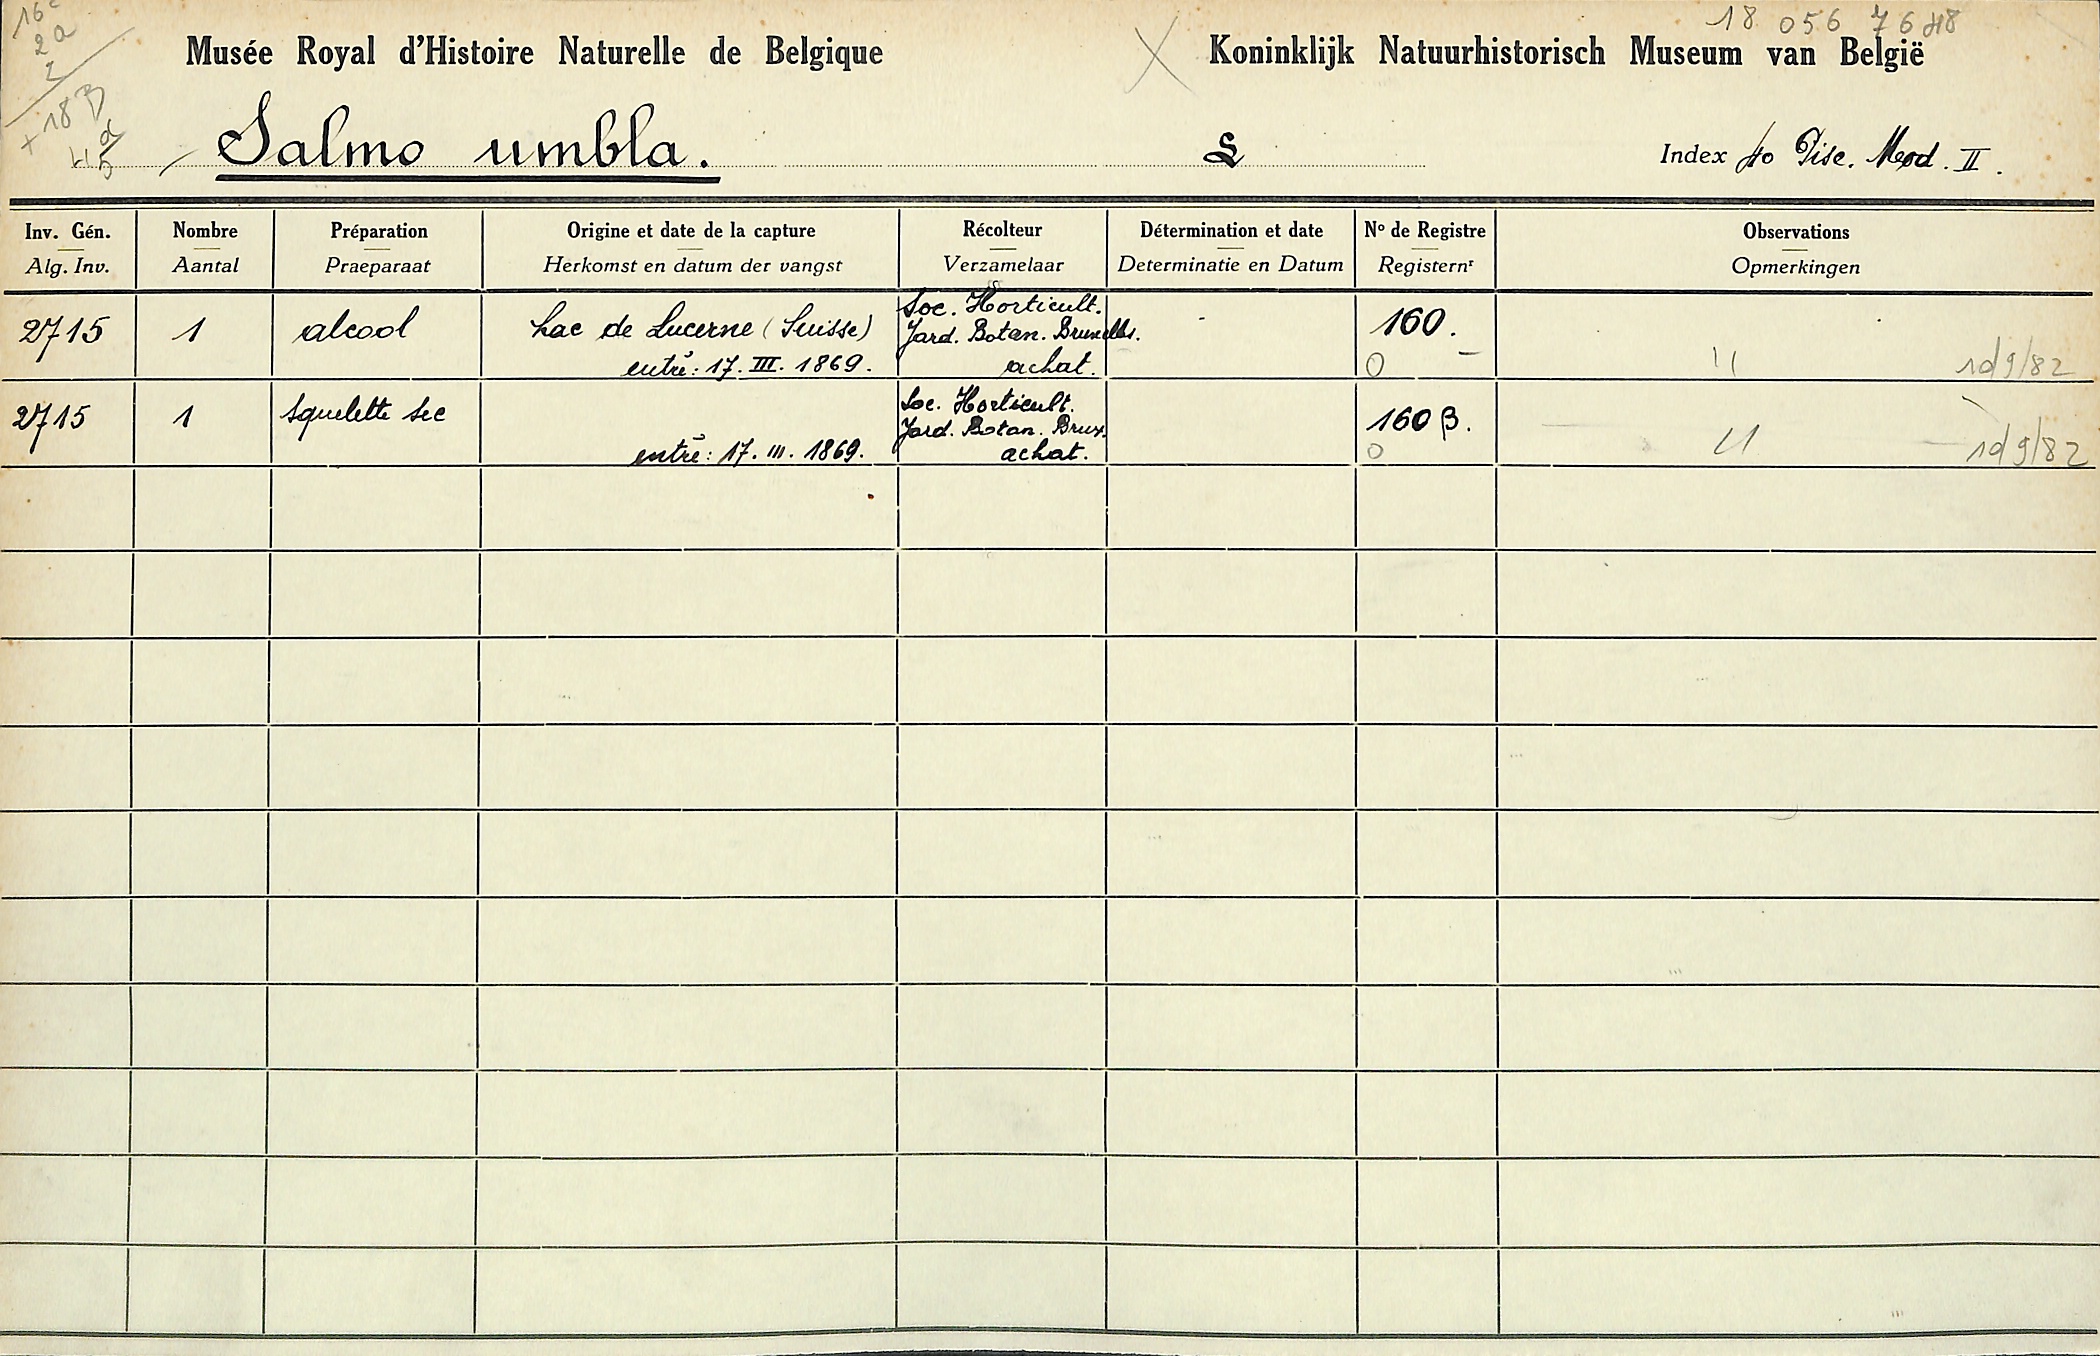 18 056 7648
Musée Royal d'Histoire Naturelle de Belgique
Koninklijk Natuurhistorisch Museum van België
+ 18 B
Salmo umbla. L
Index 40 Pisc. Mod. II.
Inv. Gén. Nombre Préparation Origine et date de la capture Récolteur Détermination et date No de Registre Observations
Alg. Inv. Aantal Praeparaat Herkomst en datum der vangst Verzamelaar Determinatie en Datum Registernr Opmerkingen
2715 1 alcool Lac de Lucerne (Suisse)
entré: 17. III. 1869.
Soc. Horticult.
Jard. Botan. Bruxelles.
achat.
160.
0
11 1d9/82
2715 1 Squelette sec
entré: 17. III. 1869.
Soc. Horticult.
Jard. Botan. Brux.
achat.
160 β.
0
11 1d9/82